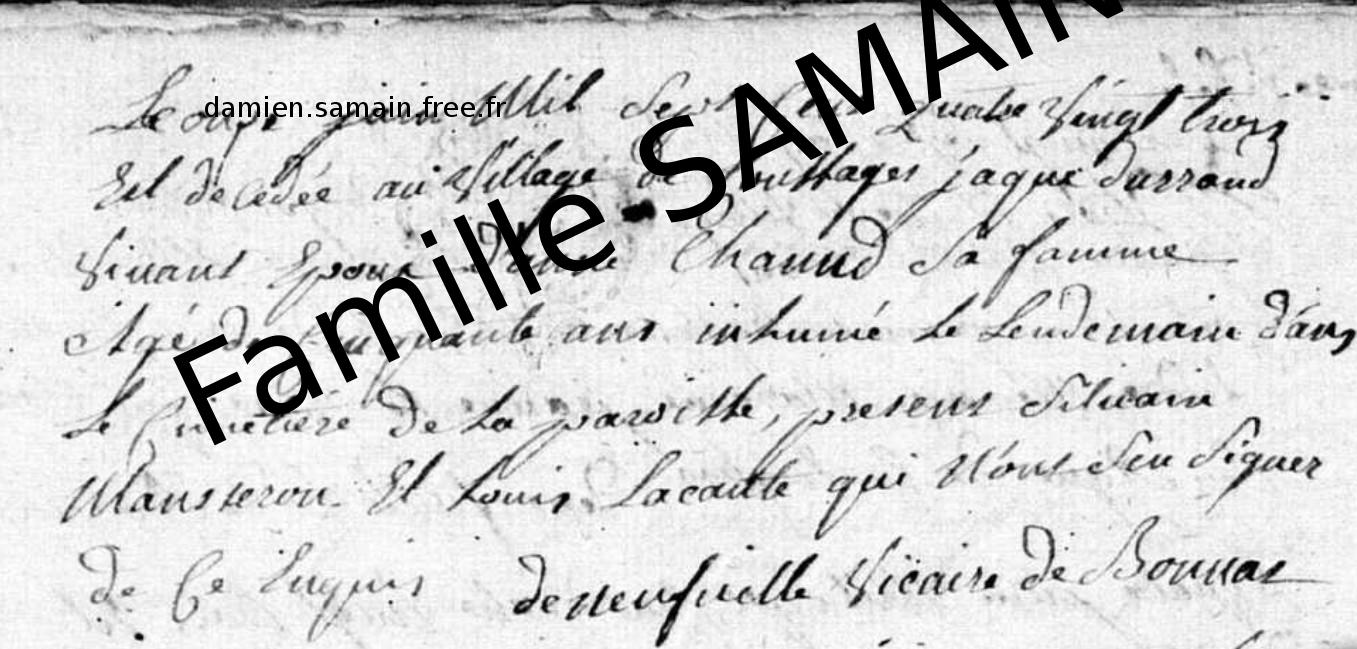 damien.samain.free.fr
Famille SAMAIN
Le onze juin Mil Sept Cens quatre vingt trois
Est décédée au Village de jaque durrand
vivant Epoux d'anne Chaund Sa famme
Agé de Cinquante ans inhumé le Lendemain dans
Le Cimetiere de La paroisse, present Silvain
Mansseron Et Louis Lacaulte qui N'ont Seu Signer
de Ce Enquis deneufville Vicaire de Bonnat